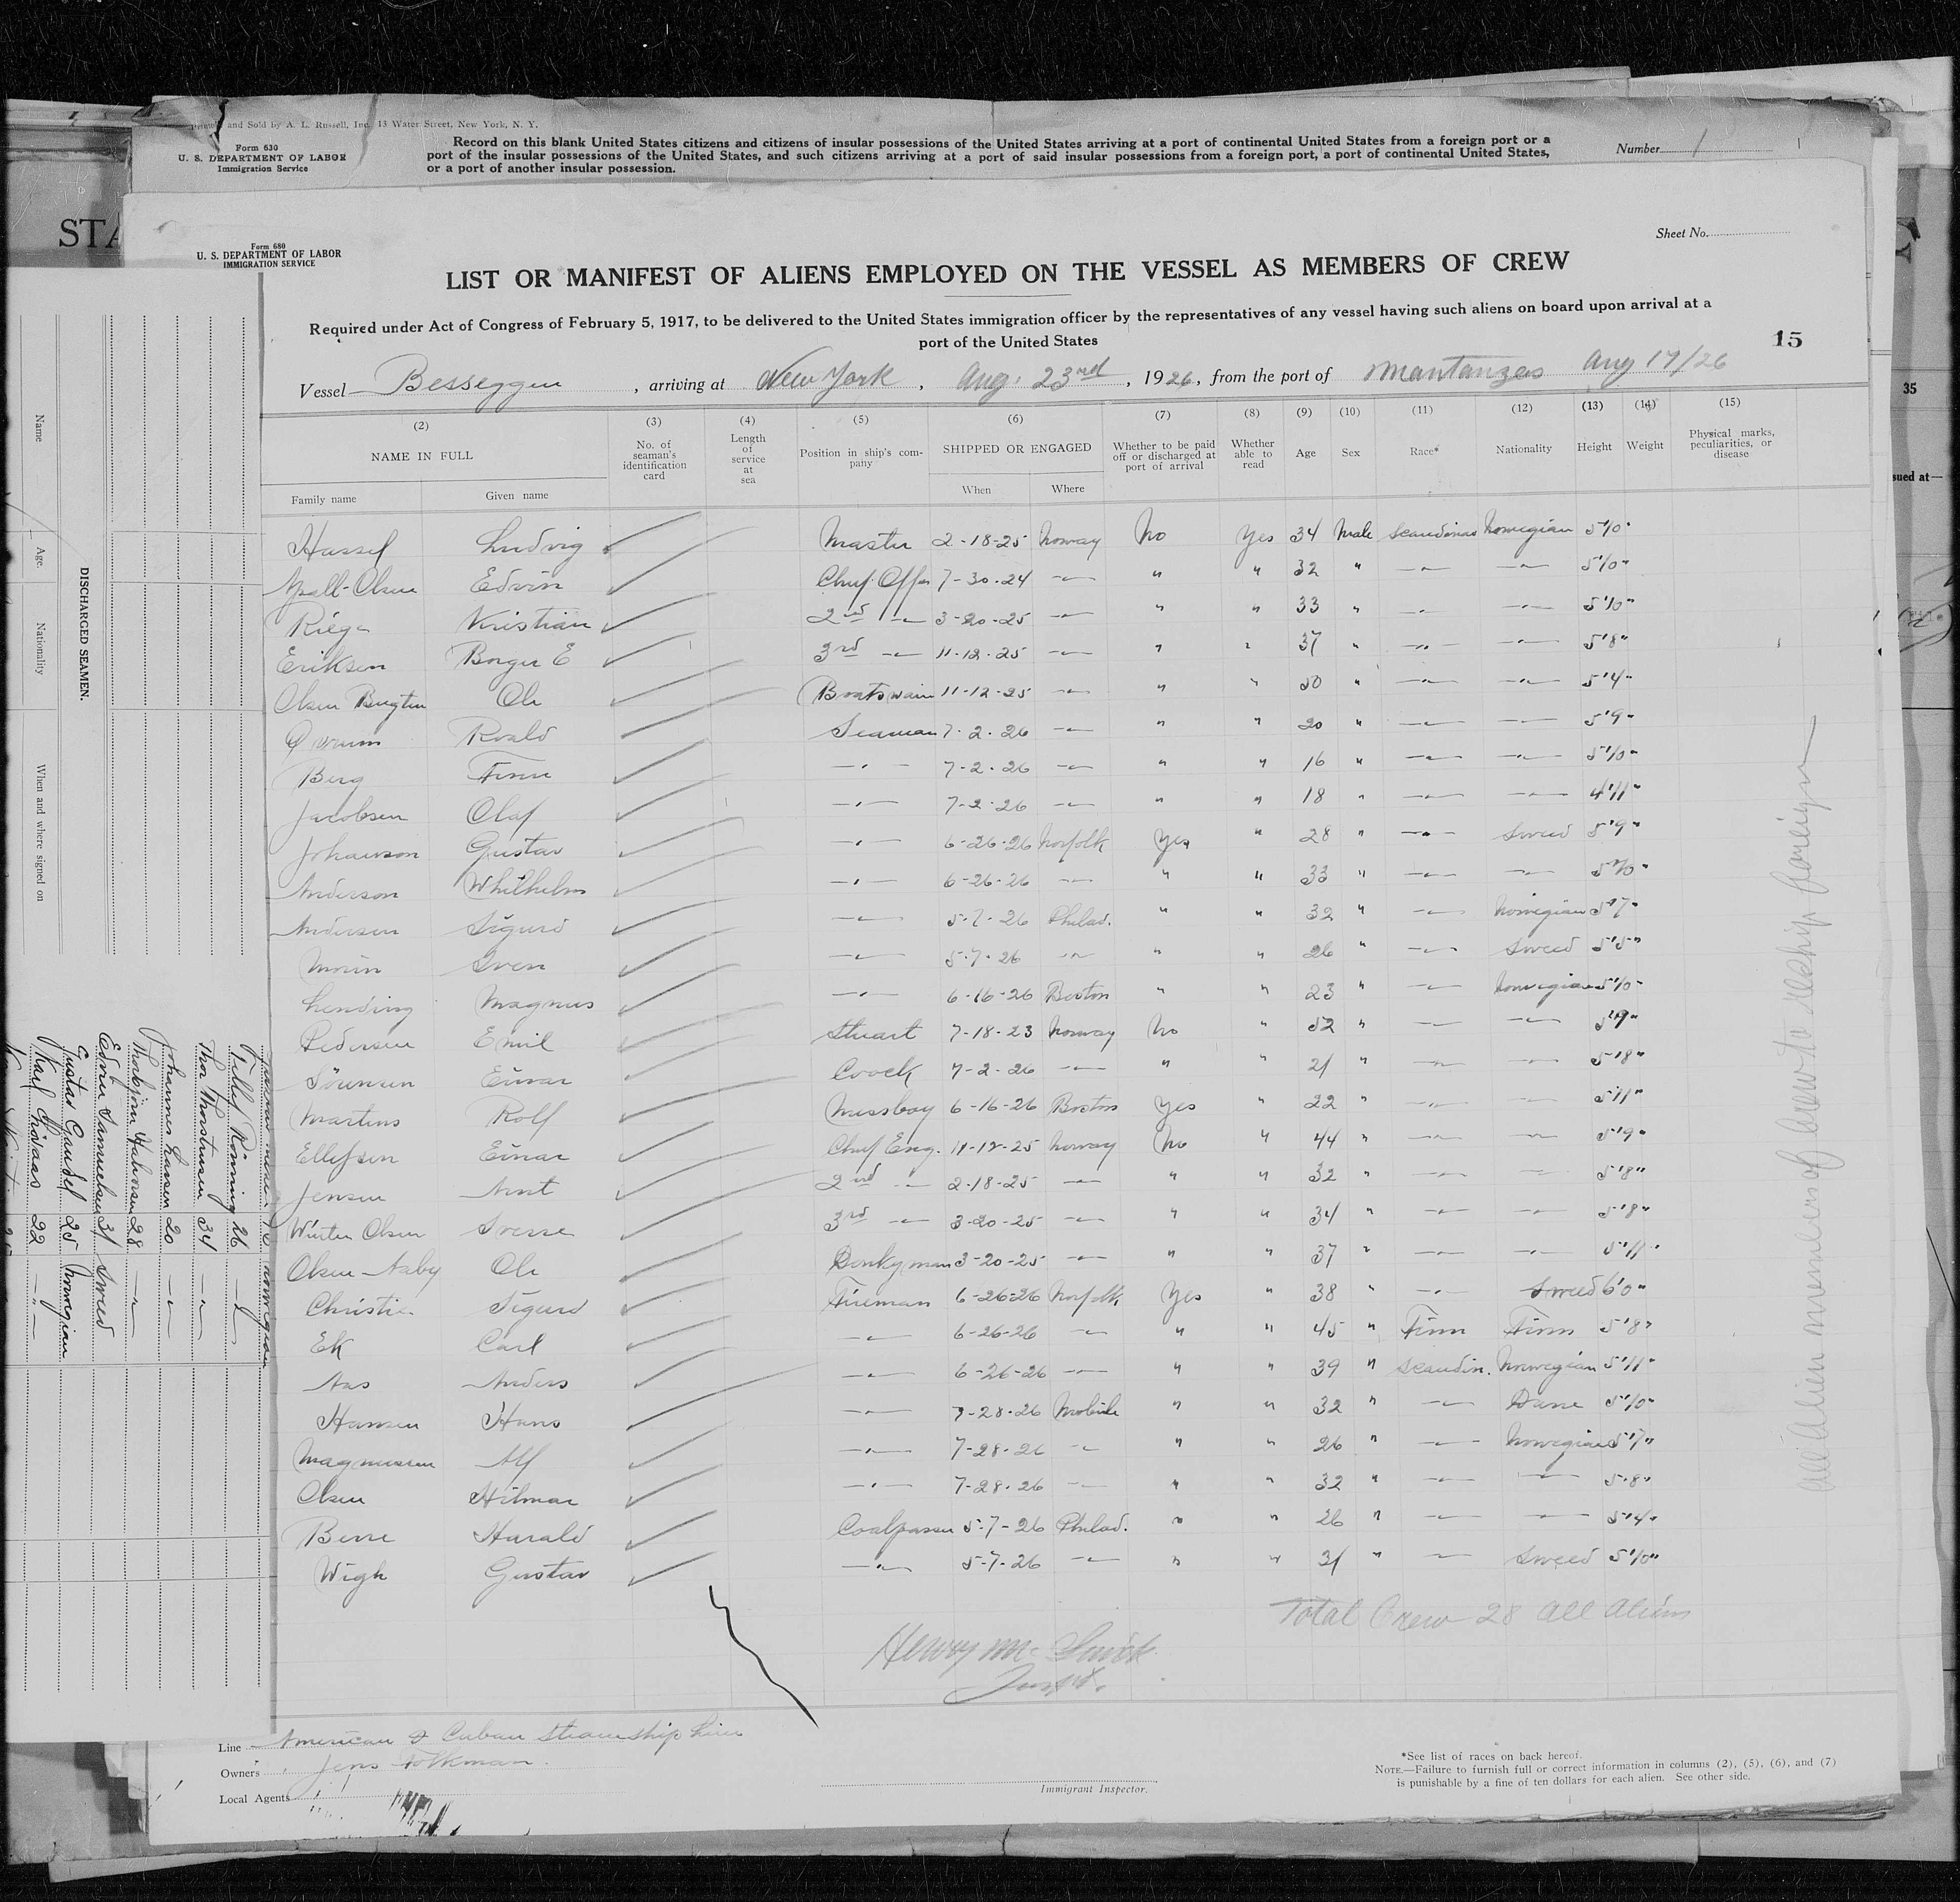 and Sold by A. L. Russell, Inc. 13 Water Street, New York, N. Y.
Form 630
U. S. DEPARTMENT OF LABOR
Immigration Service
Record on this blank United States citizens and citizens of insular possessions of the United States arriving at a port of continental United States from a foreign port or a
port of the insular possessions of the United States, and such citizens arriving at a port of said insular possessions from a foreign port, a port of continental United States,
or a port of another insular possession.
Number 1
STA
Form 680
U. S. DEPARTMENT OF LABOR
IMMIGRATION SERVICE
Sheet No.
LIST OR MANIFEST OF ALIENS EMPLOYED ON THE VESSEL AS MEMBERS OF CREW
Required under Act of Congress of February 5, 1917, to be delivered to the United States immigration officer by the representatives of any vessel having such aliens on board upon arrival at a
port of the United States
15
Vessel Besseggen, arriving at New York, Aug. 23rd, 1926, from the port of Mantanzas Aug 17/26
35
sued at—
(2) (3) (4) (5) (6) (7) (8) (9) (10) (11) (12) (13) (14) (15)
NAME IN FULL No. of seaman's identification card Length of service at sea Position in ship's company SHIPPED OR ENGAGED Whether to be paid off or discharged at port of arrival Whether able to read Age Sex Race* Nationality Height Weight Physical marks, peculiarities, or disease
Family name Given name When Where
Hassel Ludvig Master 2-18-25 Norway No Yes 34 Male Norwegian 5'10"
Edvin 7-30-24 —"— " " 32 " —"— —"— 5'10"
Kristian 2nd —"— 3-20-25 —"— " " 33 " —"— —"— 5'10"
Eriksen Borger E 3rd —"— 11-12-25 —"— " " 37 " —"— —"— 5'8"
Olsen Ole Boatswain 11-12-25 —"— " " 50 " —"— —"— 5'4"
Roald Seaman 7-2-26 —"— " " 20 " —"— —"— 5'9"
Berg Finn —"— 7-2-26 —"— " " 16 " —"— —"— 5'10"
Jacobsen Olaf —"— 7-2-26 —"— " " 18 " —"— —"— 4'11"
Johanson Gustav —"— 6-26-26 Norfolk Yes " 28 " —"— Sweed 5'9"
Anderson Whilhelm —"— 6-26-26 —"— " " 33 " —"— —"— 5'10"
Andersen Sigurd —"— 5-7-26 Philad. " " 32 " —"— Norwegian 5'7"
Sven —"— 5-7-26 —"— " " 26 " —"— Sweed 5'5"
Lending Magnus —"— 6-16-26 Boston " " 23 " —"— Norwegian 5'10"
Pedersen Emil Stuart 7-18-23 Norway No " 52 " —"— —"— 5'9"
Sörensen Einar Coock 7-2-26 —"— " " 21 " —"— —"— 5'8"
Martins Rolf Messboy 6-16-26 Boston Yes " 22 " —"— —"— 5'11"
Ellefsen Einar Chief Eng. 11-12-25 Norway No " 44 " —"— —"— 5'9"
Jensen Arnt 2nd —"— 2-18-25 —"— " " 32 " —"— —"— 5'8"
Winter Olsen Sverre 3rd —"— 3-20-25 —"— " " 34 " —"— —"— 5'8"
Olsen-Aasby Ole Donkyman 3-20-25 —"— " " 37 " —"— —"— 5'11"
Sigurd Fireman 6-26-26 Norfolk Yes " 38 " —"— Sweed 6'0"
Ek Carl —"— 6-26-26 —"— " " 45 " Finn Finn 5'8"
Aas Anders —"— 6-26-26 —"— " " 39 " Scandin. Norwegian 5'11"
Hansen Hans —"— 7-28-26 Mobile " " 32 " —"— Dane 5'10"
Magnussen Alf —"— 7-28-26 —"— " " 26 " —"— Norwegian 5'7"
Olsen Hilmar —"— 7-28-26 —"— " " 32 " —"— —"— 5'8"
Harald Coalpasser 5-7-26 Philad. " " 26 " —"— —"— 5'4"
Wigh Gustav —"— 5-7-26 —"— " " 31 " —"— Sweed 5'10"
Total Crew 28 all aliens
all Alien members of crew to reship foreign
Line American & Cuban Steamship Line
Owners Jens Folkman.
Local Agents
Immigrant Inspector.
*See list of races on back hereof.
NOTE.—Failure to furnish full or correct information in columns (2), (5), (6), and (7)
is punishable by a fine of ten dollars for each alien. See other side.
DISCHARGED SEAMEN.
Name Age. Nationality When and where signed on
Norwegian
Rönning 26 —"—
Thor Thorstensen 34 —"—
Johannes Larsen 20 —"—
Thorbjörn Halvorsen 28 —"—
Edvin Samuelsen 31 Sweed
Gustav Gundel 25 Norwegian
Karl 22 —"—